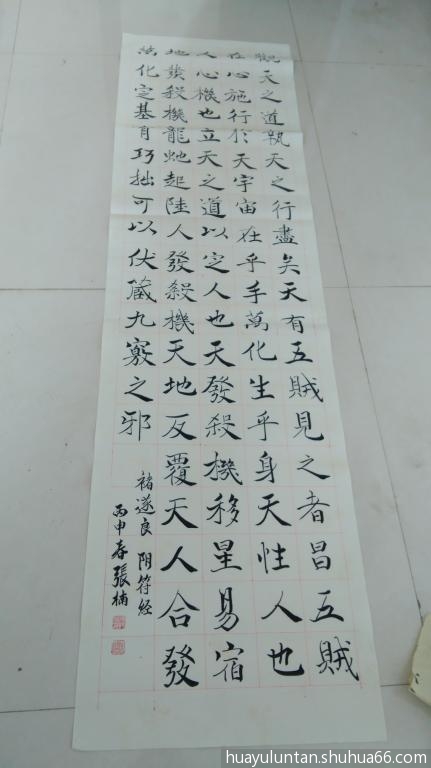 觀天之道執天之行盡矣天有五賊見之者昌五賊
在心施行於天宇宙在乎手萬化生乎身天性人也
人心機也立天之道以定人也天發殺機移星易宿
地發殺機龍虵起陸人發殺機天地反覆天人合發
萬化定基巧拙可以伏藏九竅之邪
褚遂良 阴符经
丙申春張楠
huayuluntan.shuhua66.com